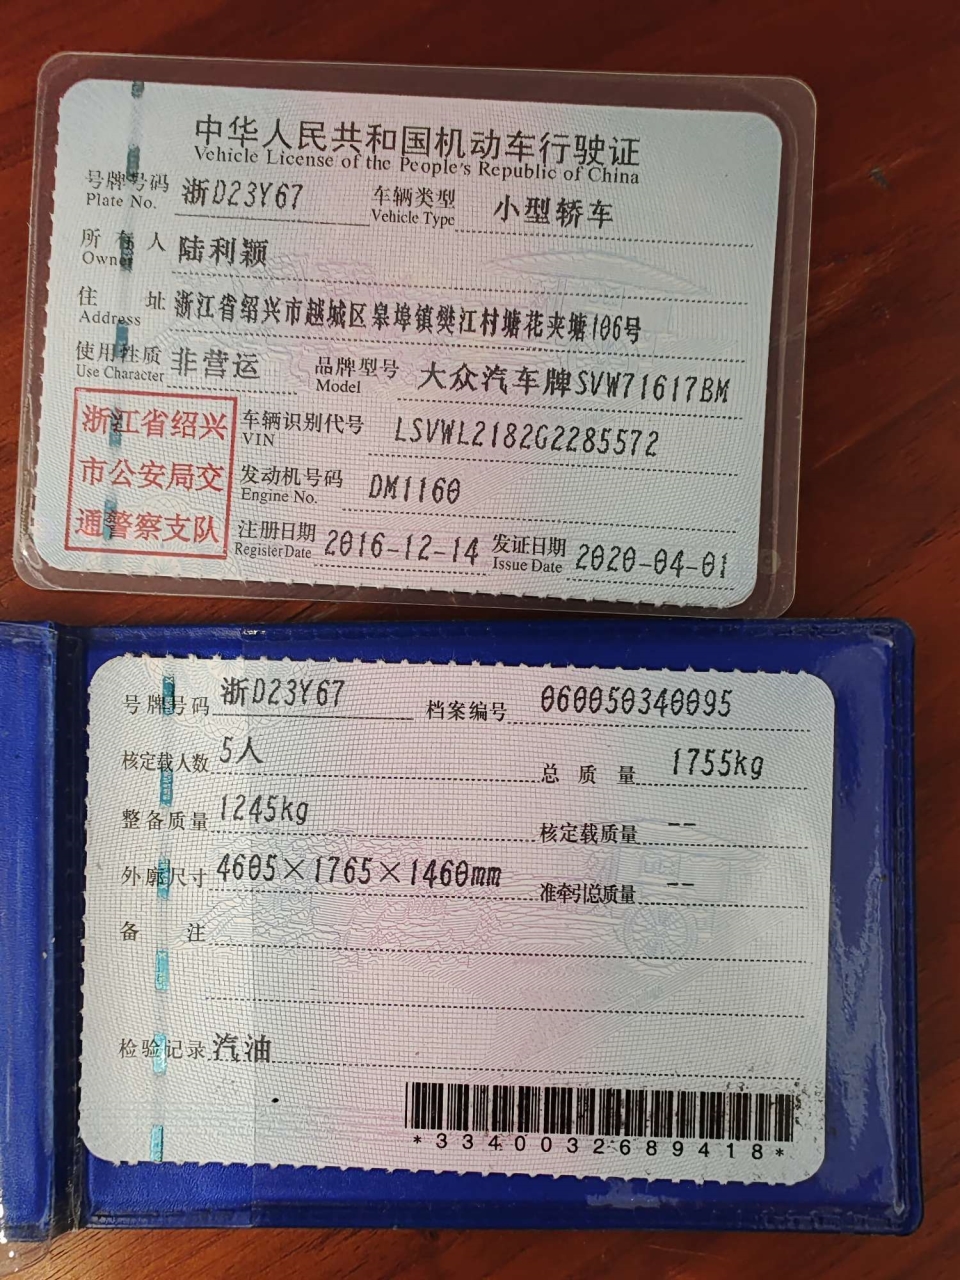 中华人民共和国机动车行驶证
Vehicle License of the People's Republic of China
号牌号码 浙D23Y67 车辆类型 小型轿车
Plate No. Vehicle Type
所有人 陆利颖
Owner
住址 浙江省绍兴市越城区皋埠镇樊江村塘花夹塘106号
Address
使用性质 非营运 品牌型号 大众汽车牌SVW71617BM
Use Character Model
浙江省绍兴
市公安局交
通警察支队
车辆识别代号 LSVWL2182G2285572
VIN
发动机号码 DM1160
Engine No.
注册日期 2016-12-14 发证日期 2020-04-01
Register Date Issue Date
号牌号码 浙D23Y67 档案编号 060050340095
核定载人数 5人 总质量 1755kg
整备质量 1245kg 核定载质量 --
外廓尺寸 4605×1765×1460mm 准牵引总质量 --
备注
检验记录 汽油
*3340032689418*